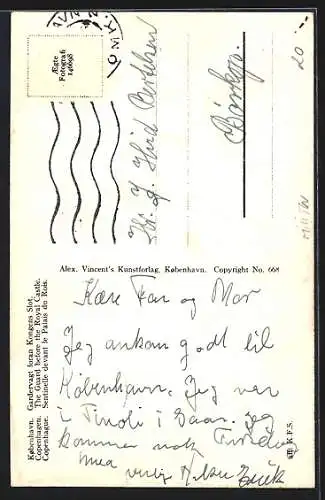 Ægte
Fotografi
146698
Birkerød
20
Alex. Vincent's Kunstforlag. København. Copyright No. 668
København. Gardervagt foran Kongens Slot.
Copenhagen. The Guard before the Royal Castle.
Copenhague. Sentinelle devant le Palais du Rois.
Kære Far og Mor
Jeg ankom godt til
København. Jeg var
i Tivoli i Gaar. jeg
kommer nok Fredag
venlig Hilsen
K.F.S.